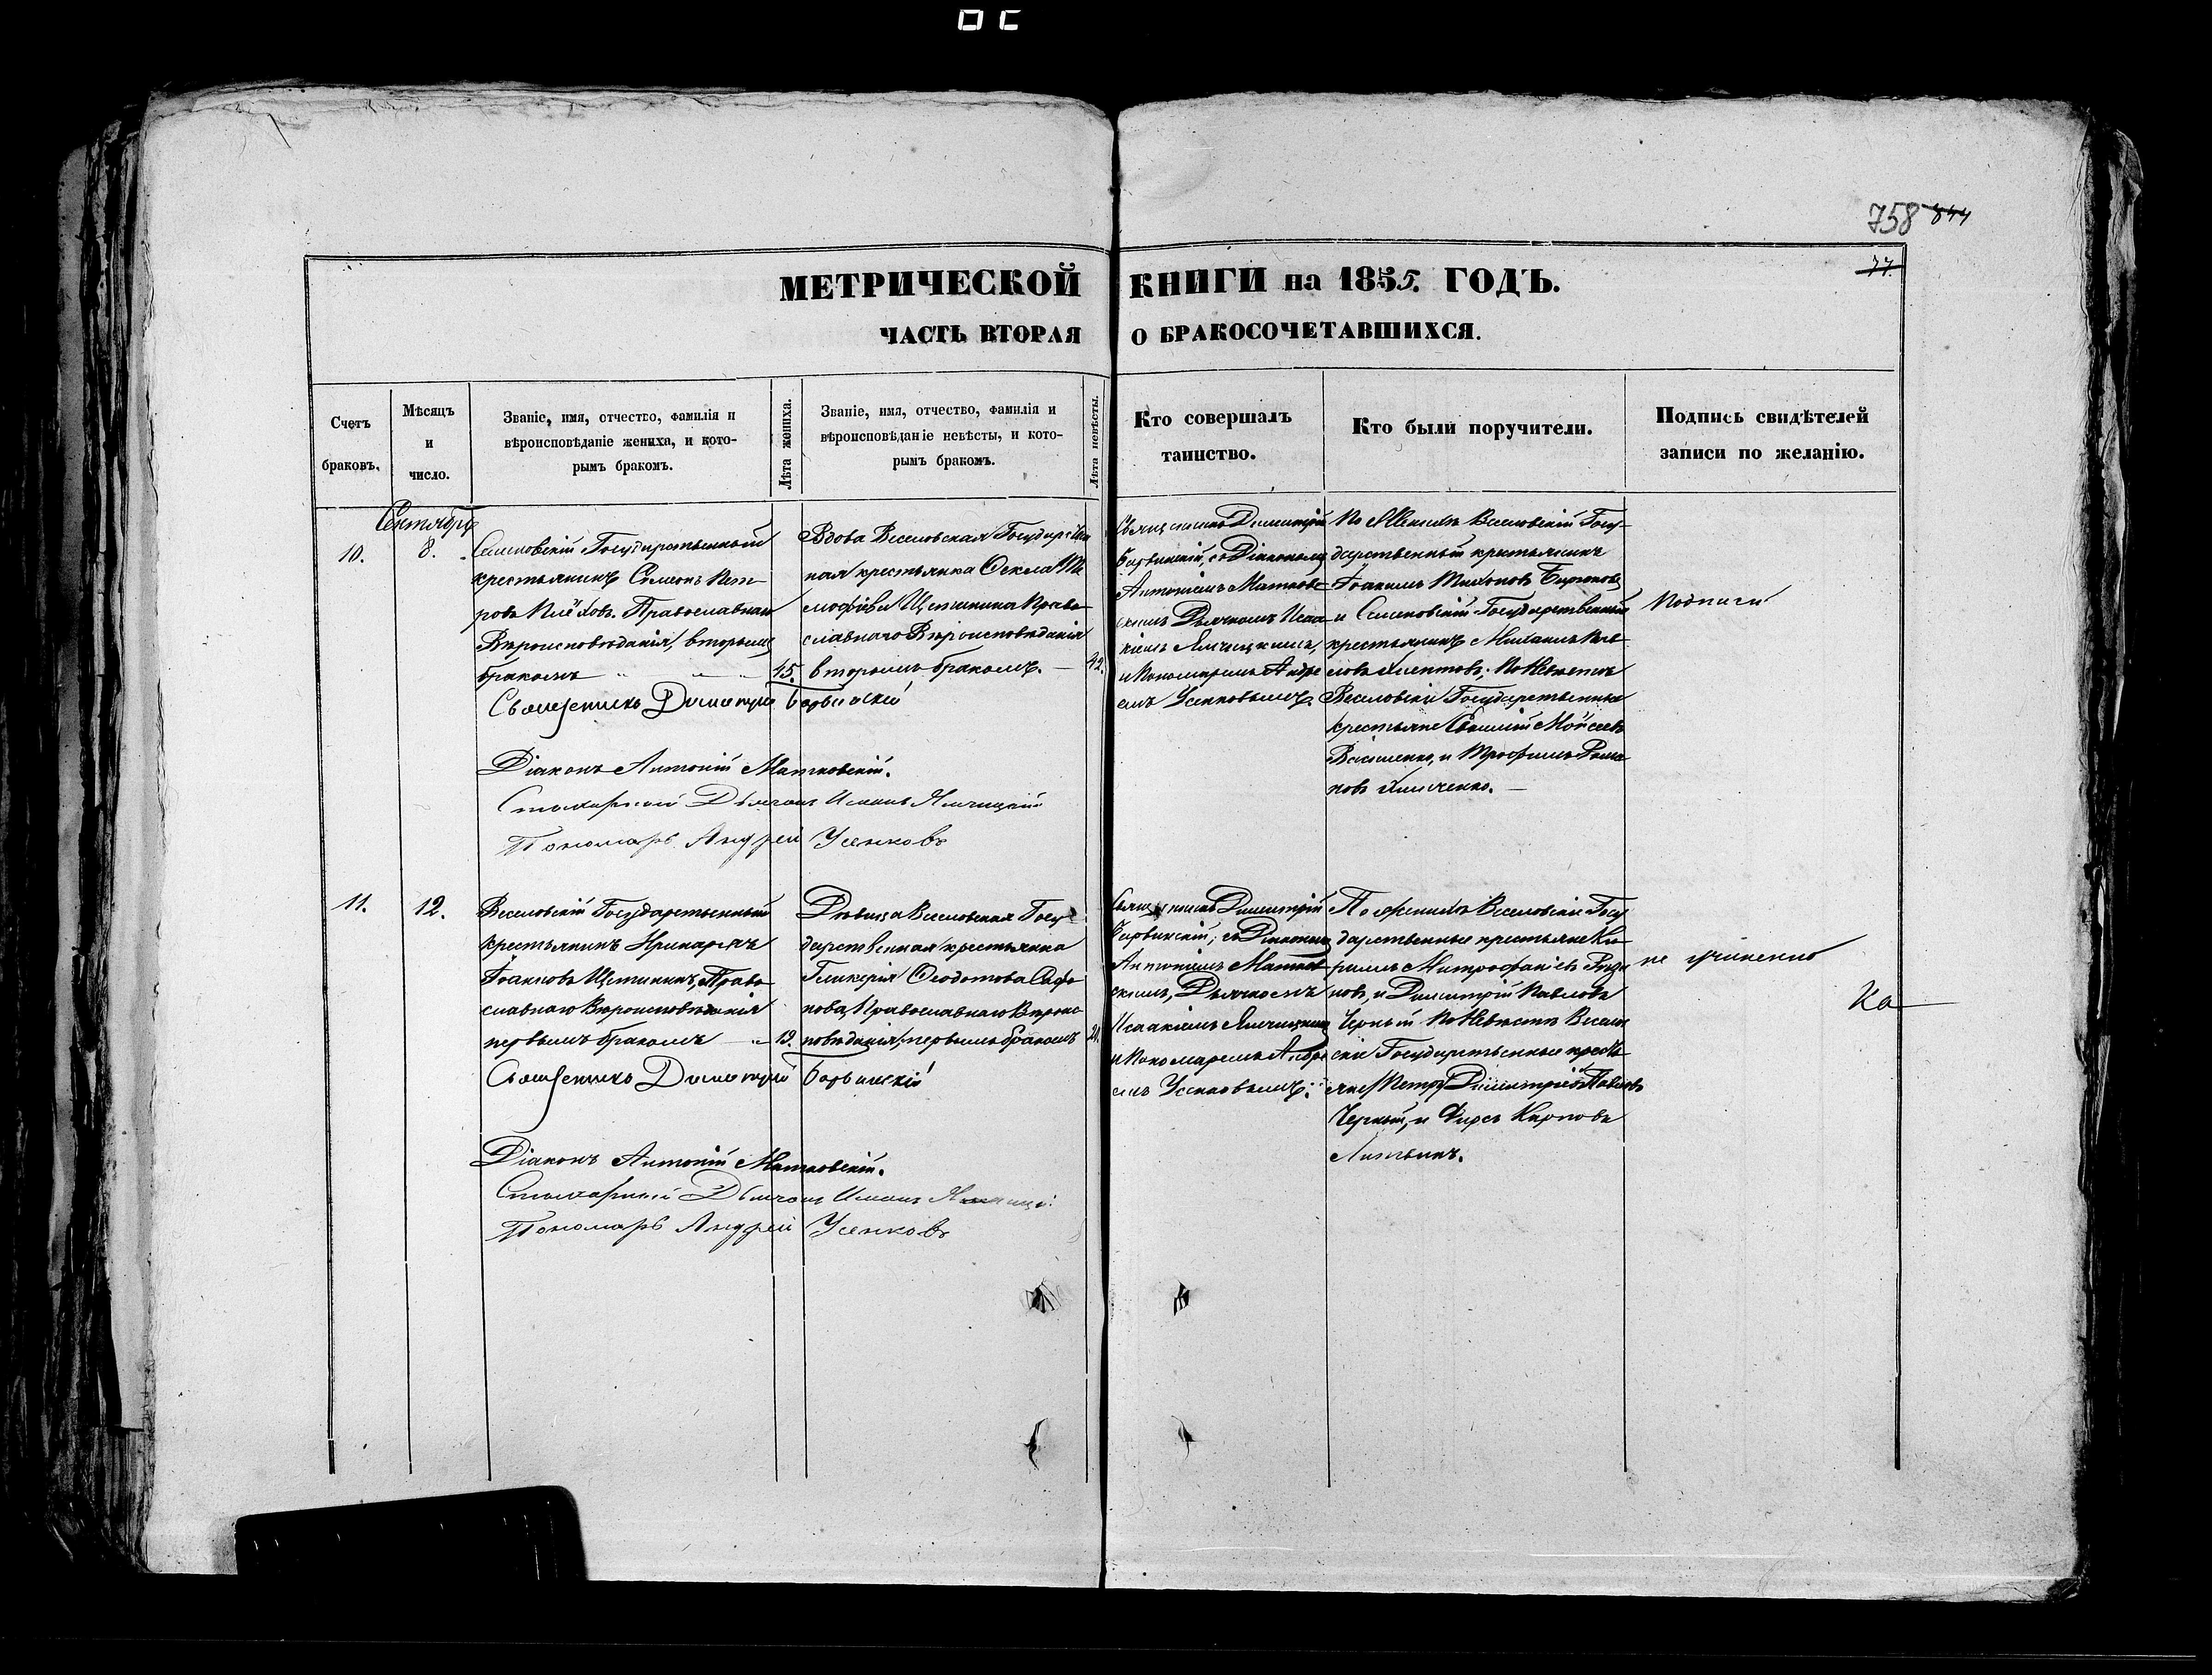 758 844
77.
МЕТРИЧЕСКОЙ КНИГИ на 1855. ГОДЪ.
ЧАСТЬ ВТОРАЯ О БРАКОСОЧЕТАВШИХСЯ.
Счетъ
браковъ.
Мѣсяцъ
и
число.
Званіе, имя, отчество, фамилія и
вѣроисповѣданіе жениха, и кото-
рымъ бракомъ.
Лѣта жениха.
Званіе, имя, отчество, фамилія и
вѣроисповѣданіе невѣсты, и кото-
рымъ бракомъ.
Лѣта невѣсты.
Кто совершалъ
таинство.
Кто были поручители.
Подпись свидѣтелей
записи по желанію.
Сентябрь
10.
8.
Семеновскій Государственный
крестьянинъ Симеонъ Пет-
ровъ Православнаго
Вѣроисповѣданія, вторымъ
бракомъ
45.
Вдова Веселовская Государствен
ная крестьянка Ѳекла Ти
моѳеева Щетинина Право-
славнаго Вѣроисповѣданія
вторымъ бракомъ. —
42.
Священникъ Димитрій
Борвинскій, съ Діакономъ
Антоніемъ Матковс-
кимъ Дьячкомъ Исаа-
кіемъ
и Пономаремъ Андре
емъ Усенковымъ.
По Женихѣ Веселовскій Госу-
дарственный крестьянинъ
Іоакимъ Тихоновъ
и Семеновскій Государственный
крестьянинъ Михаилъ
По Невѣстѣ
Веселовскіе Государственные
крестьяне Мойсеевъ
и Трофимъ Рома
новъ
Подписи
Священникъ Димитрій Борвинскій
Діаконъ Антоній Матковскій.
Дьячокъ
Пономарь Андрей Усенковъ
11.
12.
Веселовскій Государственный
крестьянинъ
Іоанновъ Щетининъ, Право-
славнаго Вѣроисповѣданія
первымъ бракомъ
19.
Дѣвица Веселовская Госу-
дарственная крестьянка
Гликерія Ѳеодотова Сафо
нова, Православнаго Вѣроис-
повѣданія, первымъ бракомъ
21.
Священникъ Димитрій
Борвинскій, съ Діакономъ
Антоніемъ Матков-
скимъ, Дьячкомъ
Исаакіемъ
и Пономаремъ Андре
емъ Усенковымъ.
По Женихѣ Веселовскіе Госу
дарственные крестьяне Ки-
риллъ Митрофаніевъ
и Димитрій Павловъ
Черный По Невѣстѣ Веселов
скіе Государственные кресть
яне Петръ Димитріевъ Павловъ
Черный, и Фирсъ Карповъ
Литвинъ.
не учинено
Священникъ Димитрій Борвинскій
Діаконъ Антоній Матковскій.
Дьячокъ
Пономарь Андрей Усенковъ